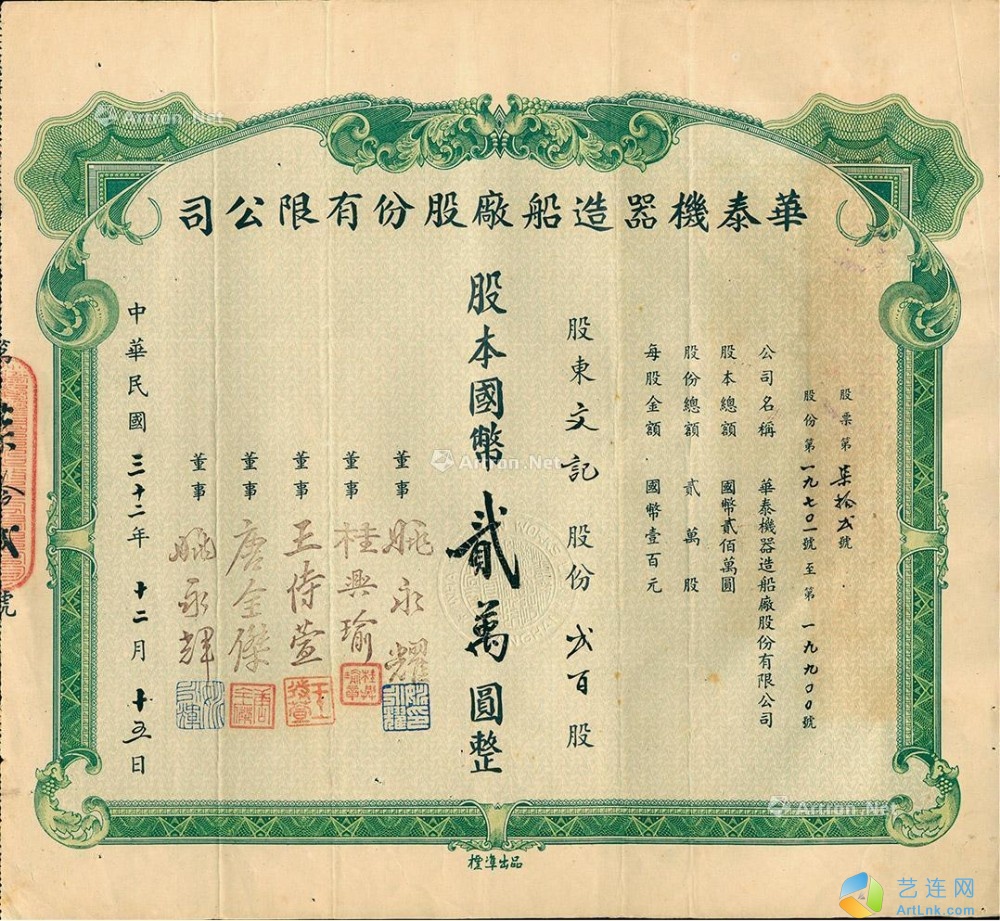 華泰機器造船廠股份有限公司
股票第柒拾弍號
股份第一九七〇一號至第一九九〇〇號
公司名稱 華泰機器造船廠股份有限公司
股本總額 國幣貳佰萬圓
股份總額 貳萬股
每股金額 國幣壹百元
股東文記 股份弍百股
股本國幣貳萬圓整
董事 姚永耀
董事 桂興瑜
董事 王侍萱
董事 唐全傑
董事 姚永輝
中華民國三十二年十二月十五日
第柒拾弍號
標準出品
Artron.Net
Artron.Net
Artron.Net
艺连网
ArtLnk.com